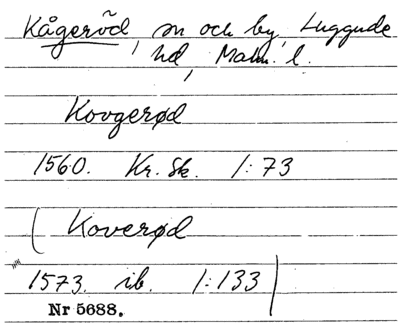 Kågeröd, sn och by, Luggude
hd, Malm. l.
Kovgerød
1560. Kr. Sk. 1:73
(Koverød
1573. ib. 1:133)
Nr 5688.